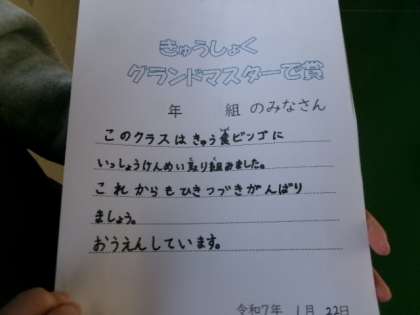 きゅうしょく
グランドマスターで賞
年 組 のみなさん
このクラスはきゅう食ビンゴに
いっしょうけんめい取り組みました。
これからもひきつづきがんばり
ましょう。
おうえんしています。
令和7年 1月 22日